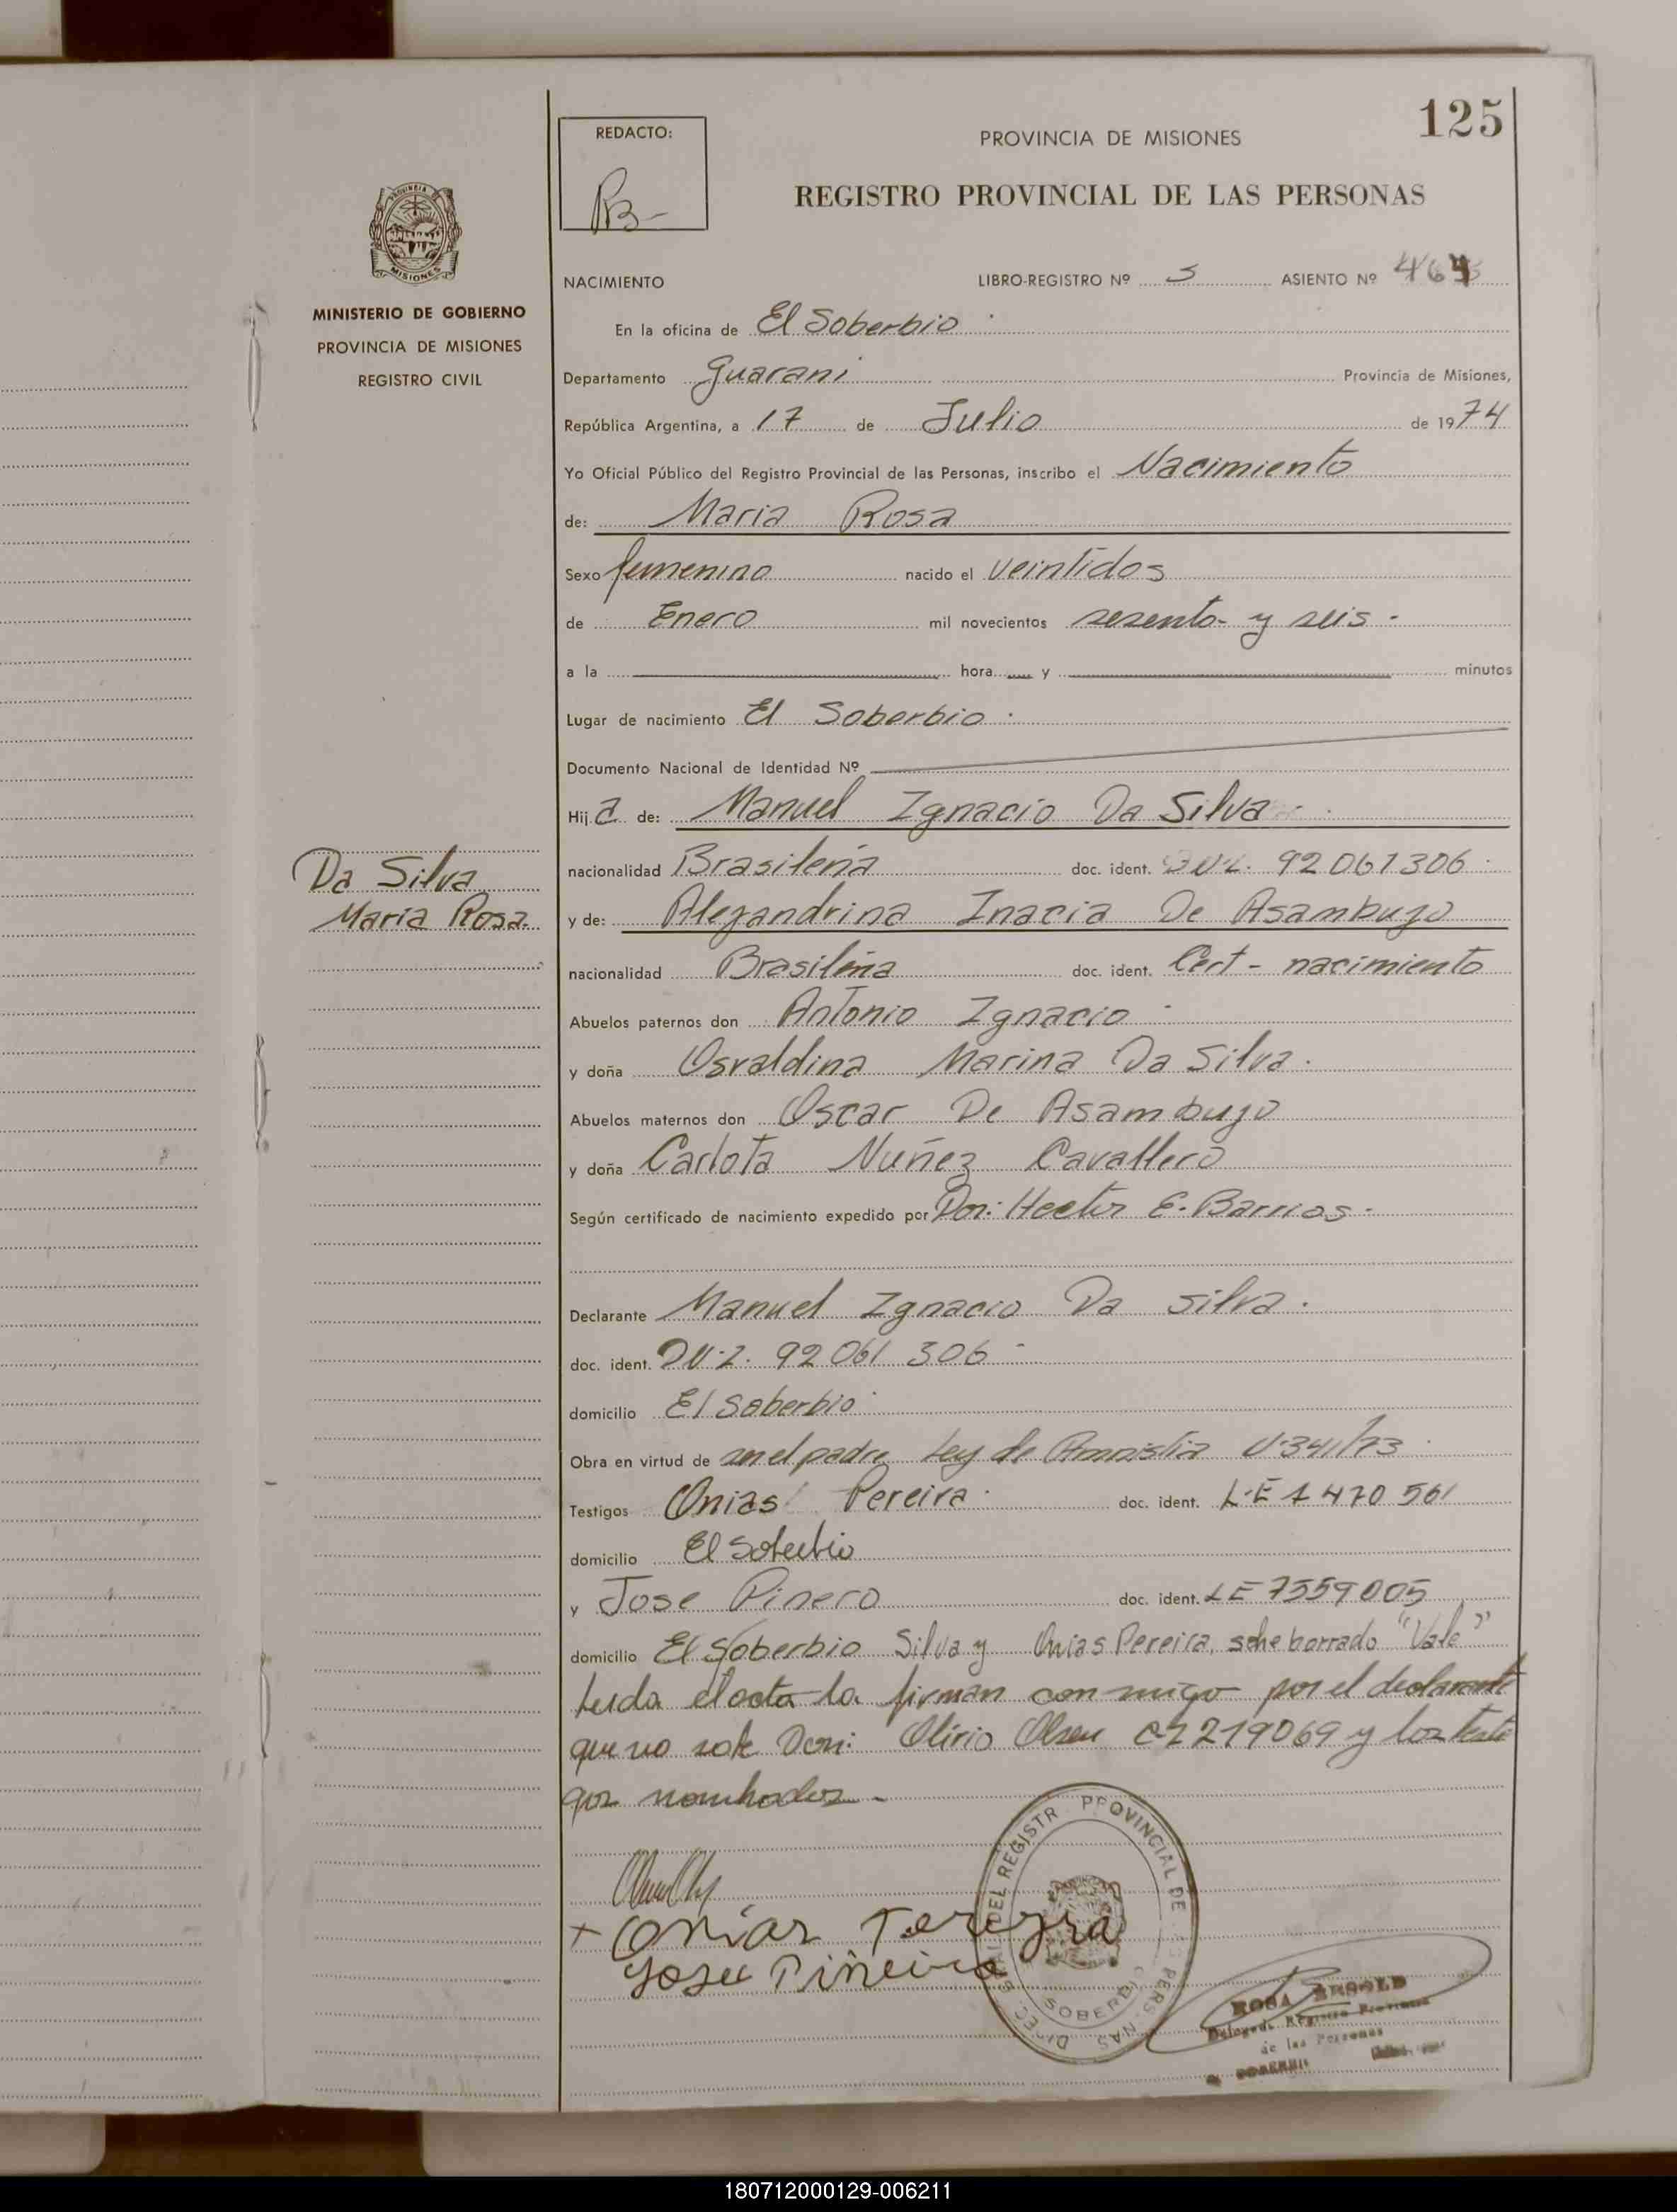 125
REDACTO:
PROVINCIA DE MISIONES
REGISTRO PROVINCIAL DE LAS PERSONAS
PROVINCIA
MISIONES
MINISTERIO DE GOBIERNO
PROVINCIA DE MISIONES
REGISTRO CIVIL
NACIMIENTO LIBRO-REGISTRO Nº 3 ASIENTO Nº
En la oficina de El Soberbio
Departamento Guarani Provincia de Misiones,
República Argentina, a 17 de Julio de 1974
Yo Oficial Público del Registro Provincial de las Personas, inscribo el Nacimiento
de: Maria Rosa
Sexo femenino nacido el veintidos
de Enero mil novecientos sesenta y seis -
a la hora y minutos
Lugar de nacimiento El Soberbio.
Documento Nacional de Identidad Nº
Hija de: Manuel Ignacio Da Silva
Da Silva
Maria Rosa.
nacionalidad Brasileña doc. ident. 92 061306
y de: Alejandrina Inacia De Asambujo
nacionalidad Brasileña doc. ident. Cert - nacimiento
Abuelos paternos don Antonio Ignacio
y doña Osvaldina Marina Da Silva.
Abuelos maternos don Oscar De Asambujo
y doña Carlota Nuñez Cavallero
Según certificado de nacimiento expedido por Dor: Hector E. Barrios.
Declarante Manuel Ignacio Da Silva.
doc. ident. 92 061 306
domicilio El Soberbio
Obra en virtud de ser el padre Ley de Amnistia
Testigos Onias Pereira doc. ident. L.E 1 470 561
domicilio El Soberbio
y Jose Pinero doc. ident. LE 7559005
domicilio El Soberbio Silva y Onias Pereira, sobre borrado "Vale"
Leida el acta la firman con migo por el declarante
que no sabe Don: Olirio Olsen 219069 y los testi
gos nombrados -
+ Onias Pereyra
Jose Piñeiro
DEL REGISTR PROVINCIAL DE PERSONAS
SOBERBIO
ROSA
Registro Provincial
de las Personas
SOBERBIO
180712000129-006211